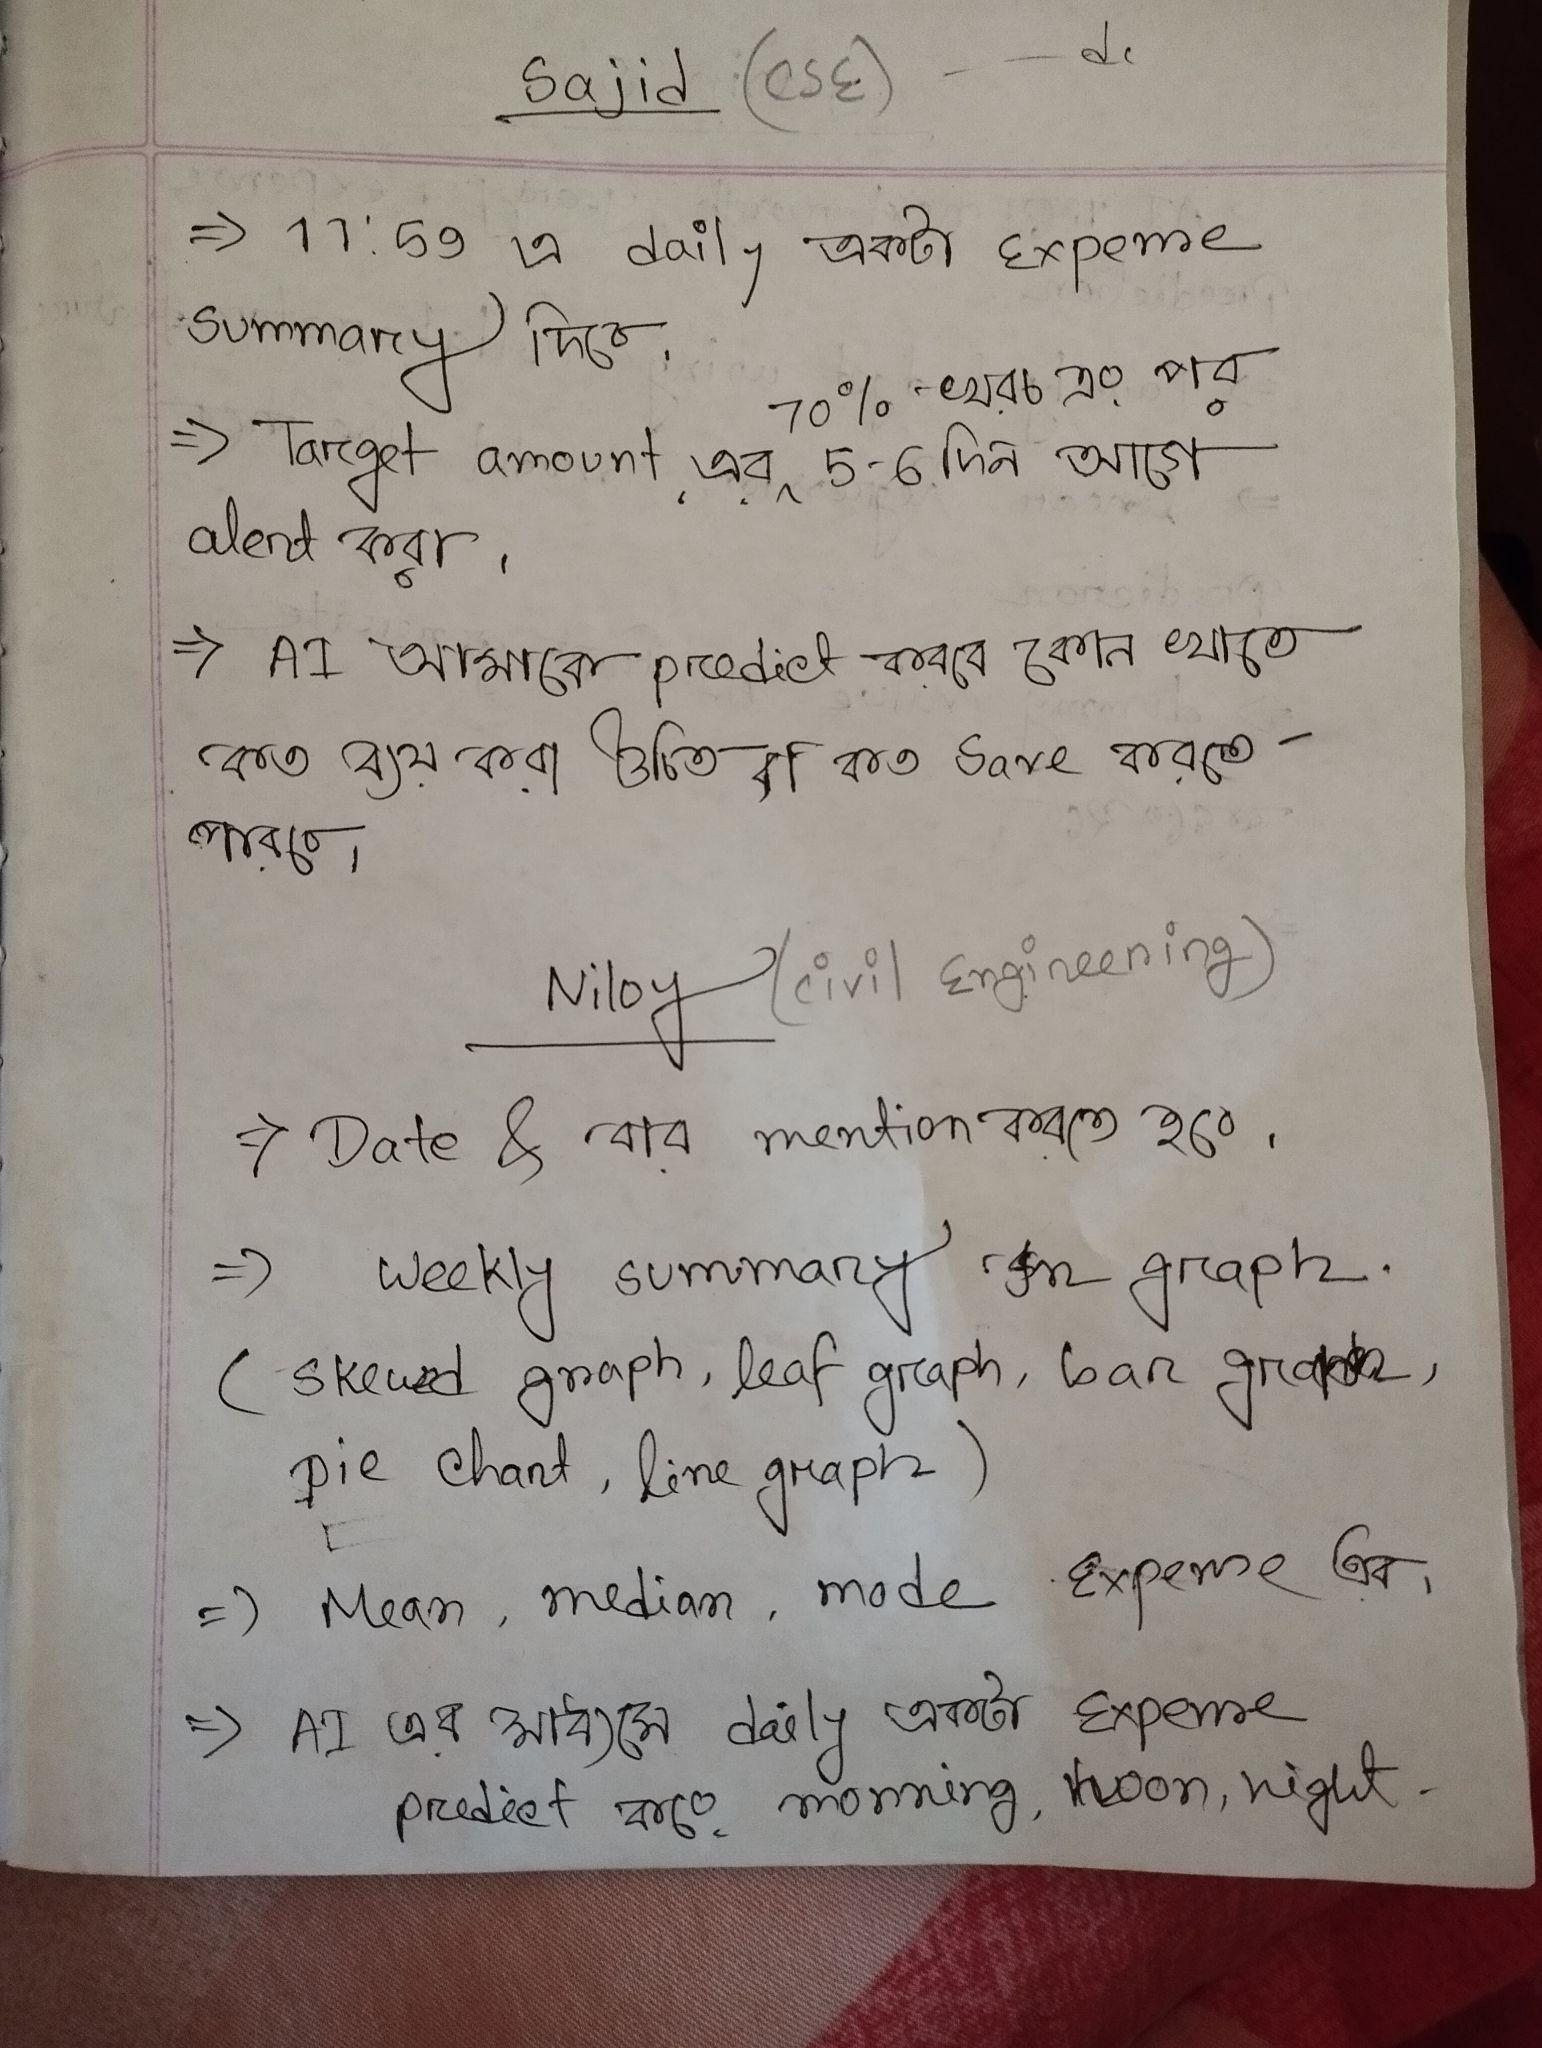 Sajid (CSE) - — d.
=> 11:59 এ daily একটা Expense
summary দিবে।
70% খরচ এর পর
=> Target amount এর 5-6 দিন আগে
alert করা।
=> AI আমাকে predict করবে কোন খাতে
কত ব্যয় করা উচিত বা কত save করতে
পারবে।
Niloy (Civil Engineering)
=> Date & বার mention করতে হবে।
=> weekly summary in graph.
(skewed graph, leaf graph, bar graph,
pie chart, line graph)
=> Mean, median, mode Expense এর।
=> AI এর মাধ্যমে daily একটা Expense
predict করবে morning, noon, night -